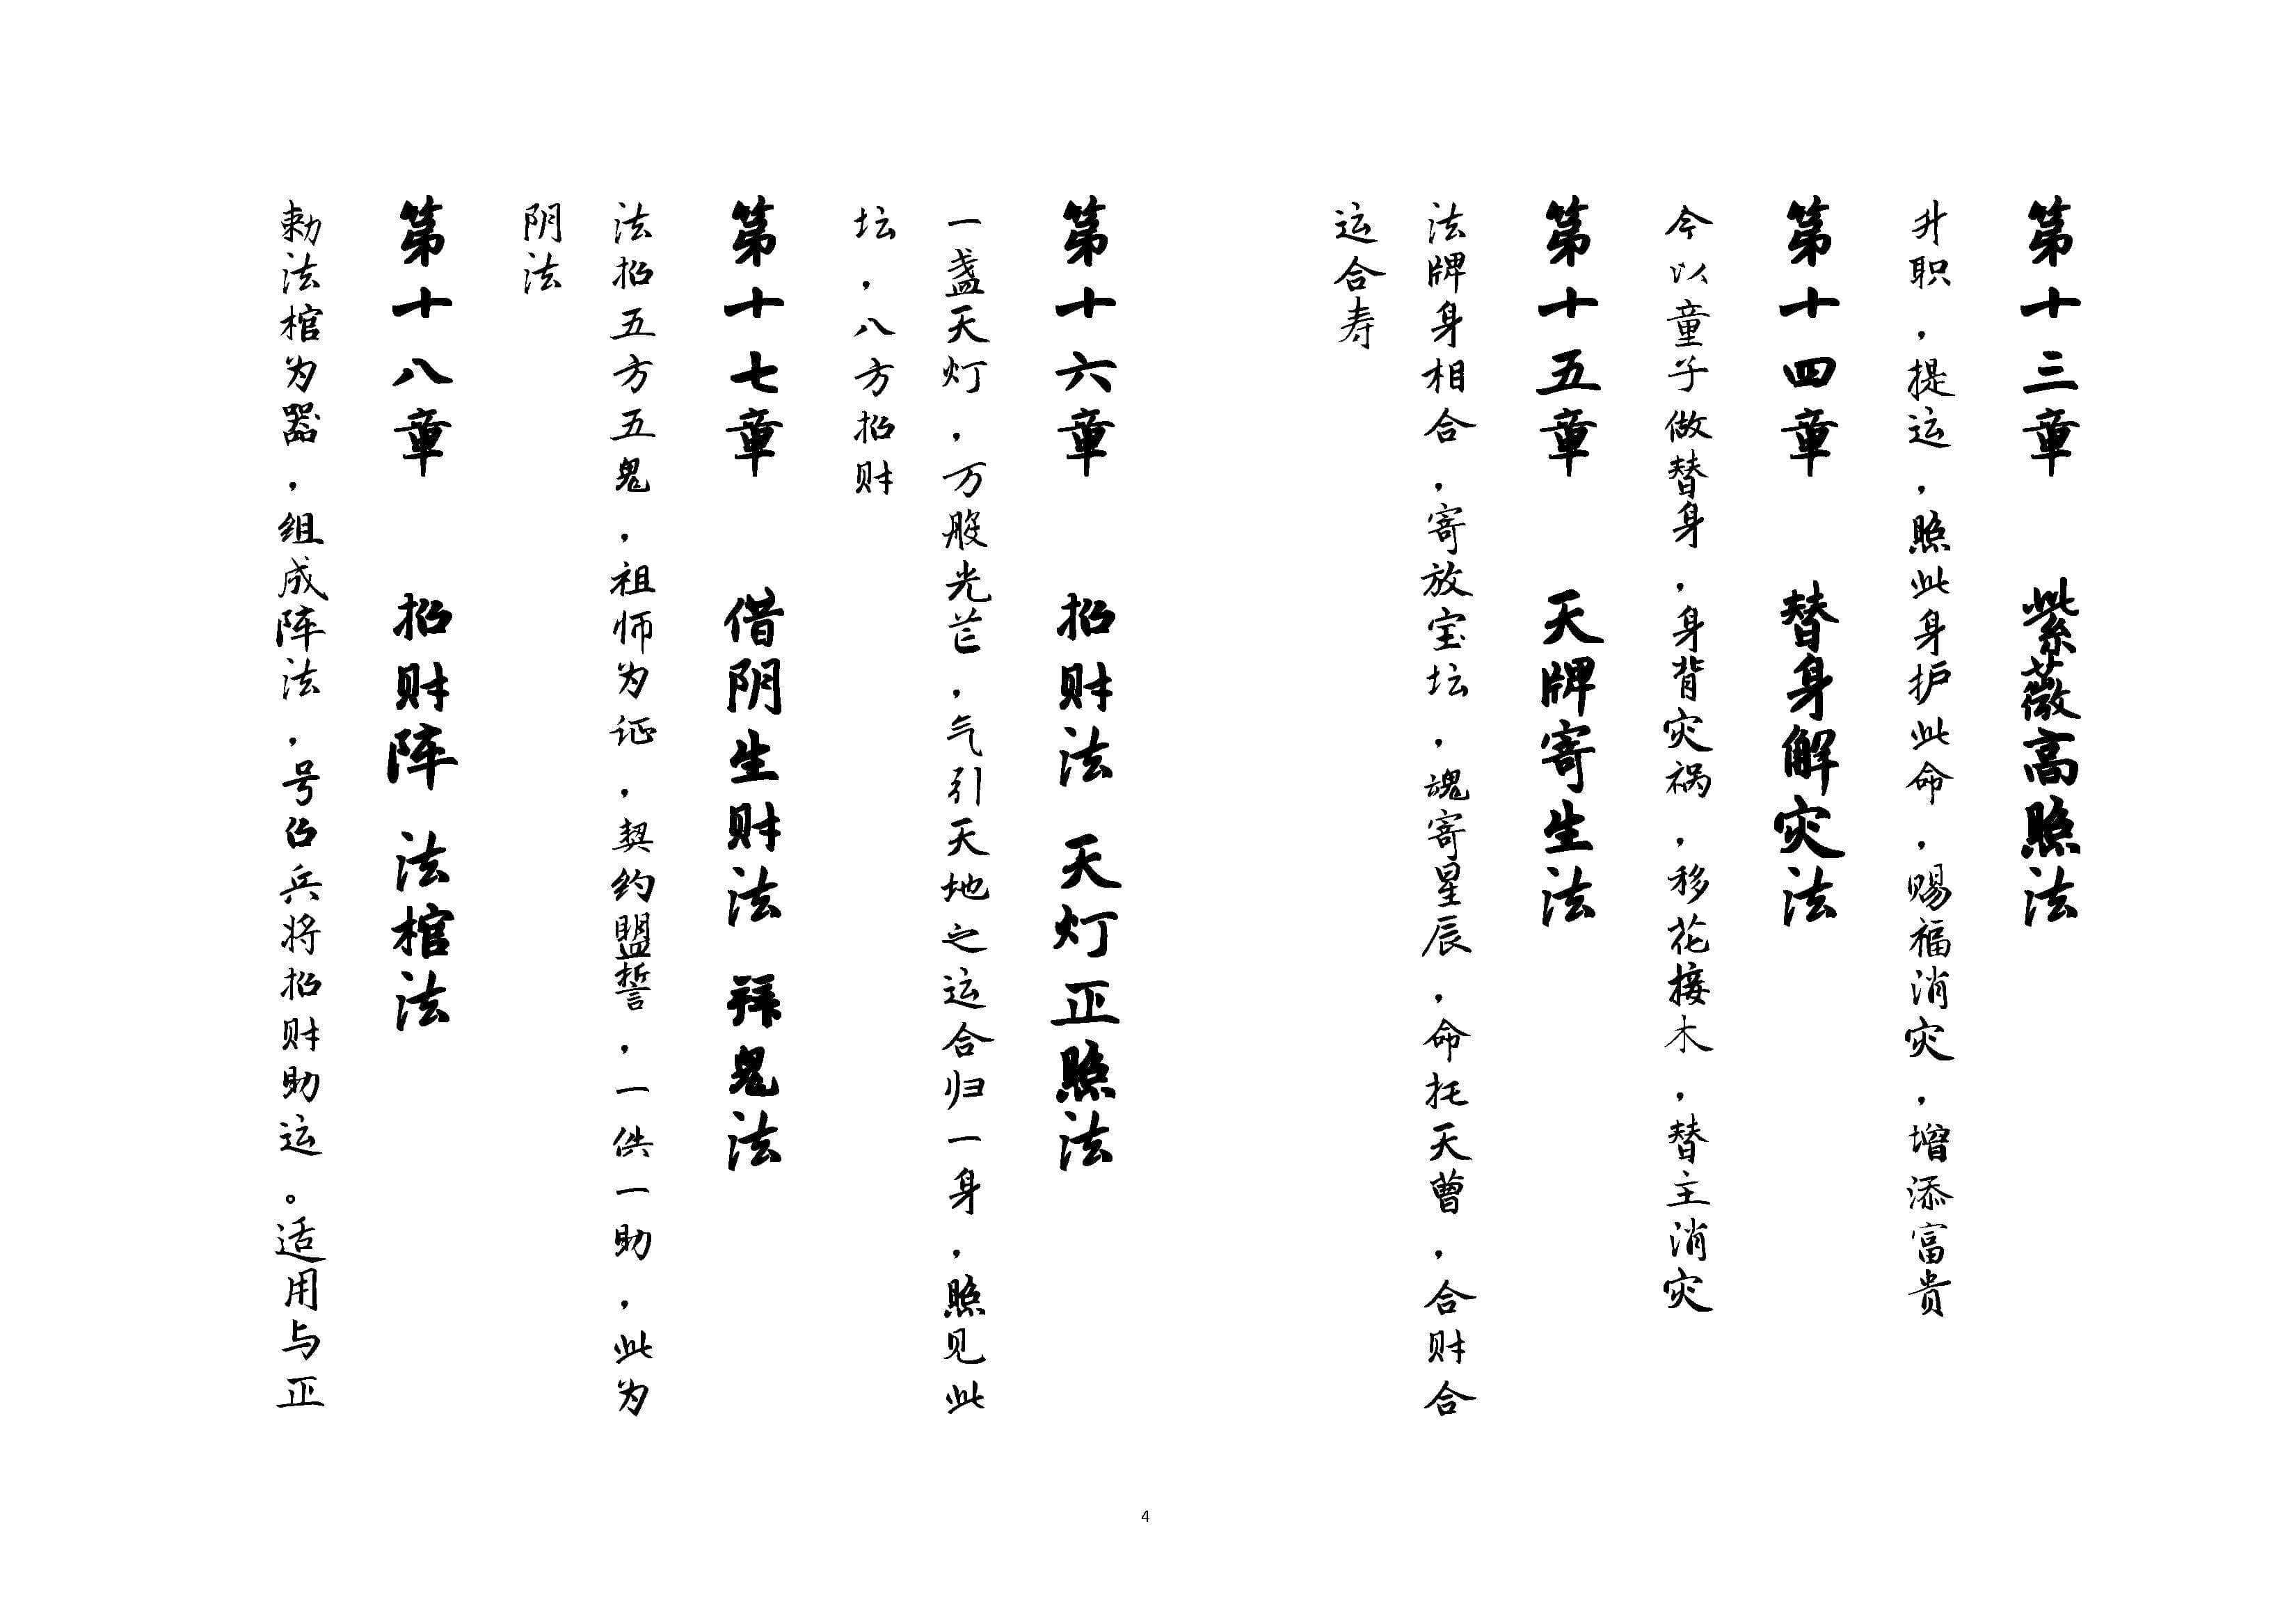 第十三章 紫薇高照法
升职，提运，照此身护此命，赐福消灾，增添富贵
第十四章 替身解灾法
今以童子做替身，身背灾祸，移花接木，替主消灾
第十五章 天牌寄生法
法牌身相合，寄放宝坛，魂寄星辰，命托天曹，合财合
运合寿
第十六章 招财法 天灯正照法
一盏天灯，万般光芒，气引天地之运合归一身，照见此
坛，八方招财
第十七章 借阴生财法 拜鬼法
法招五方五鬼，祖师为证，契约盟誓，一供一助，此为
阴法
第十八章 招财阵 法棺法
勅法棺为器，组成阵法，号召兵将招财助运。适用与正
4